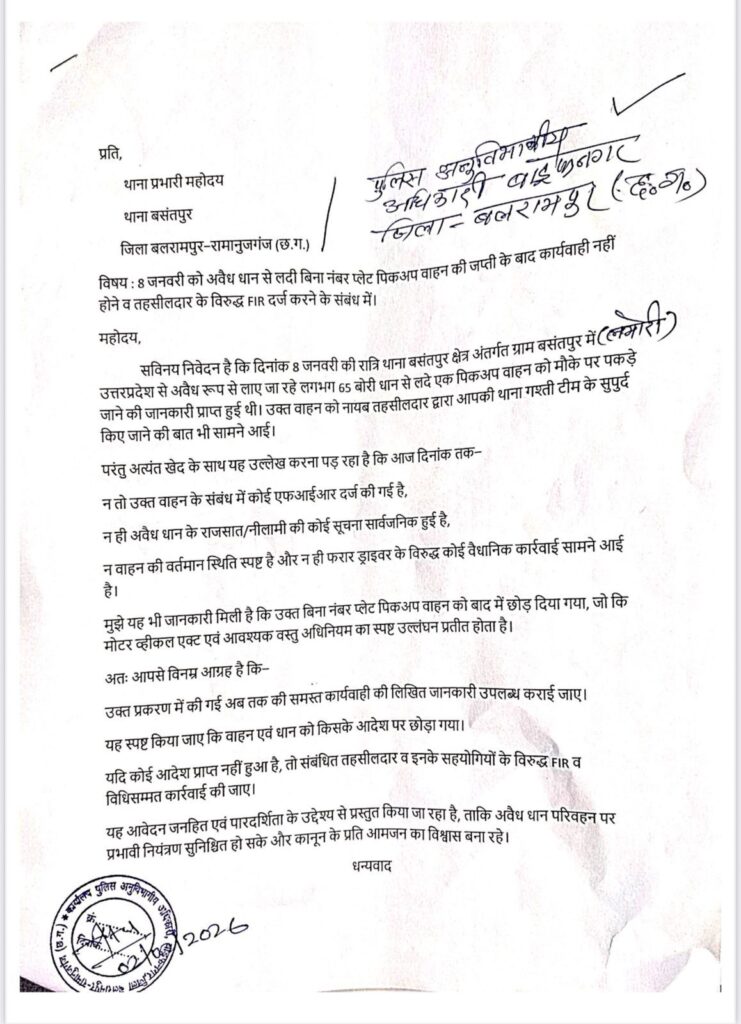 प्रति,
थाना प्रभारी महोदय
थाना बसंतपुर
जिला बलरामपुर-रामानुजगंज (छ.ग.)
पुलिस अनुविभागीय
अधिकारी
जिला- बलरामपुर (छ०ग०)
विषय : 8 जनवरी को अवैध धान से लदी बिना नंबर प्लेट पिकअप वाहन की जप्ती के बाद कार्यवाही नहीं
होने व तहसीलदार के विरुद्ध FIR दर्ज करने के संबंध में।
महोदय,
सविनय निवेदन है कि दिनांक 8 जनवरी की रात्रि थाना बसंतपुर क्षेत्र अंतर्गत ग्राम बसंतपुर में
उत्तरप्रदेश से अवैध रूप से लाए जा रहे लगभग 65 बोरी धान से लदे एक पिकअप वाहन को मौके पर पकड़े
जाने की जानकारी प्राप्त हुई थी। उक्त वाहन को नायब तहसीलदार द्वारा आपकी थाना गश्ती टीम के सुपुर्द
किए जाने की बात भी सामने आई।
परंतु अत्यंत खेद के साथ यह उल्लेख करना पड़ रहा है कि आज दिनांक तक–
न तो उक्त वाहन के संबंध में कोई एफआईआर दर्ज की गई है,
न ही अवैध धान के राजसात/नीलामी की कोई सूचना सार्वजनिक हुई है,
न वाहन की वर्तमान स्थिति स्पष्ट है और न ही फरार ड्राइवर के विरुद्ध कोई वैधानिक कार्रवाई सामने आई
है।
मुझे यह भी जानकारी मिली है कि उक्त बिना नंबर प्लेट पिकअप वाहन को बाद में छोड़ दिया गया, जो कि
मोटर व्हीकल एक्ट एवं आवश्यक वस्तु अधिनियम का स्पष्ट उल्लंघन प्रतीत होता है।
अतः आपसे विनम्र आग्रह है कि–
उक्त प्रकरण में की गई अब तक की समस्त कार्यवाही की लिखित जानकारी उपलब्ध कराई जाए।
यह स्पष्ट किया जाए कि वाहन एवं धान को किसके आदेश पर छोड़ा गया।
यदि कोई आदेश प्राप्त नहीं हुआ है, तो संबंधित तहसीलदार व इनके सहयोगियों के विरुद्ध FIR व
विधिसम्मत कार्रवाई की जाए।
यह आवेदन जनहित एवं पारदर्शिता के उद्देश्य से प्रस्तुत किया जा रहा है, ताकि अवैध धान परिवहन पर
प्रभावी नियंत्रण सुनिश्चित हो सके और कानून के प्रति आमजन का विश्वास बना रहे।
धन्यवाद
कार्यालय पुलिस अनुविभागीय अधिकारी,
(छ.ग.)
क्रं.
दिनांक
2026